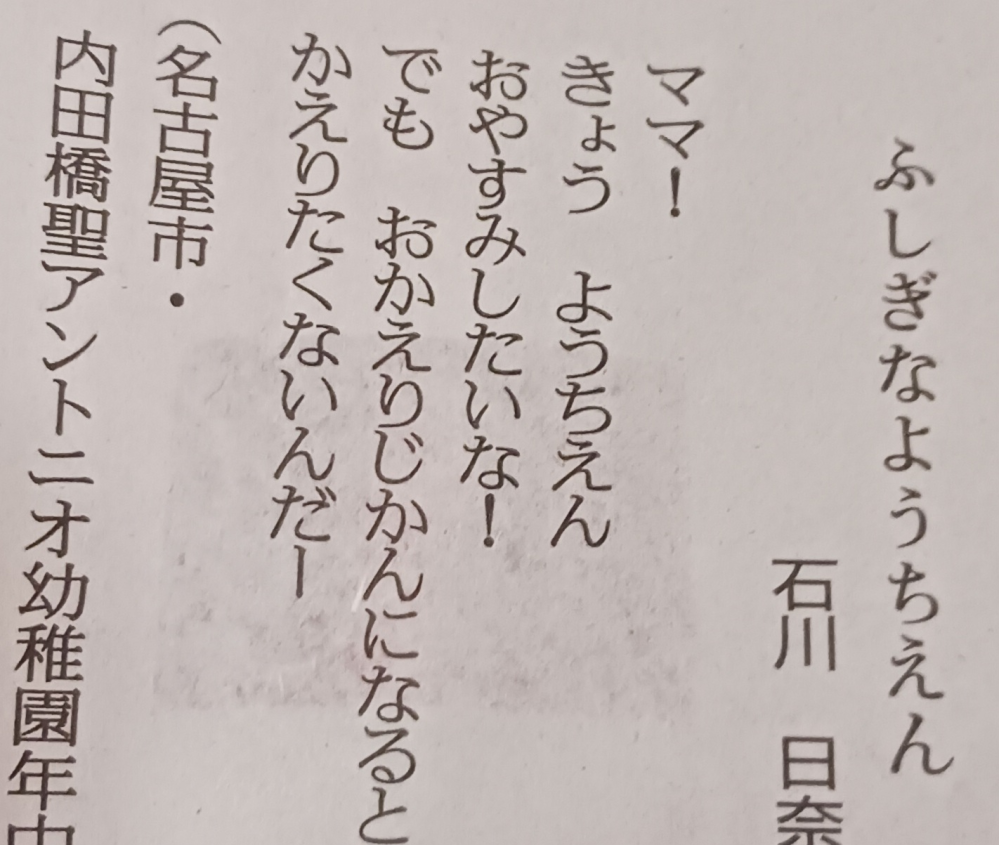 ふしぎなようちえん
石川　日奈
ママ！
きょう　ようちえん
おやすみしたいな！
でも　おかえりじかんになると
かえりたくないんだー
（名古屋市・
内田橋聖アントニオ幼稚園年中